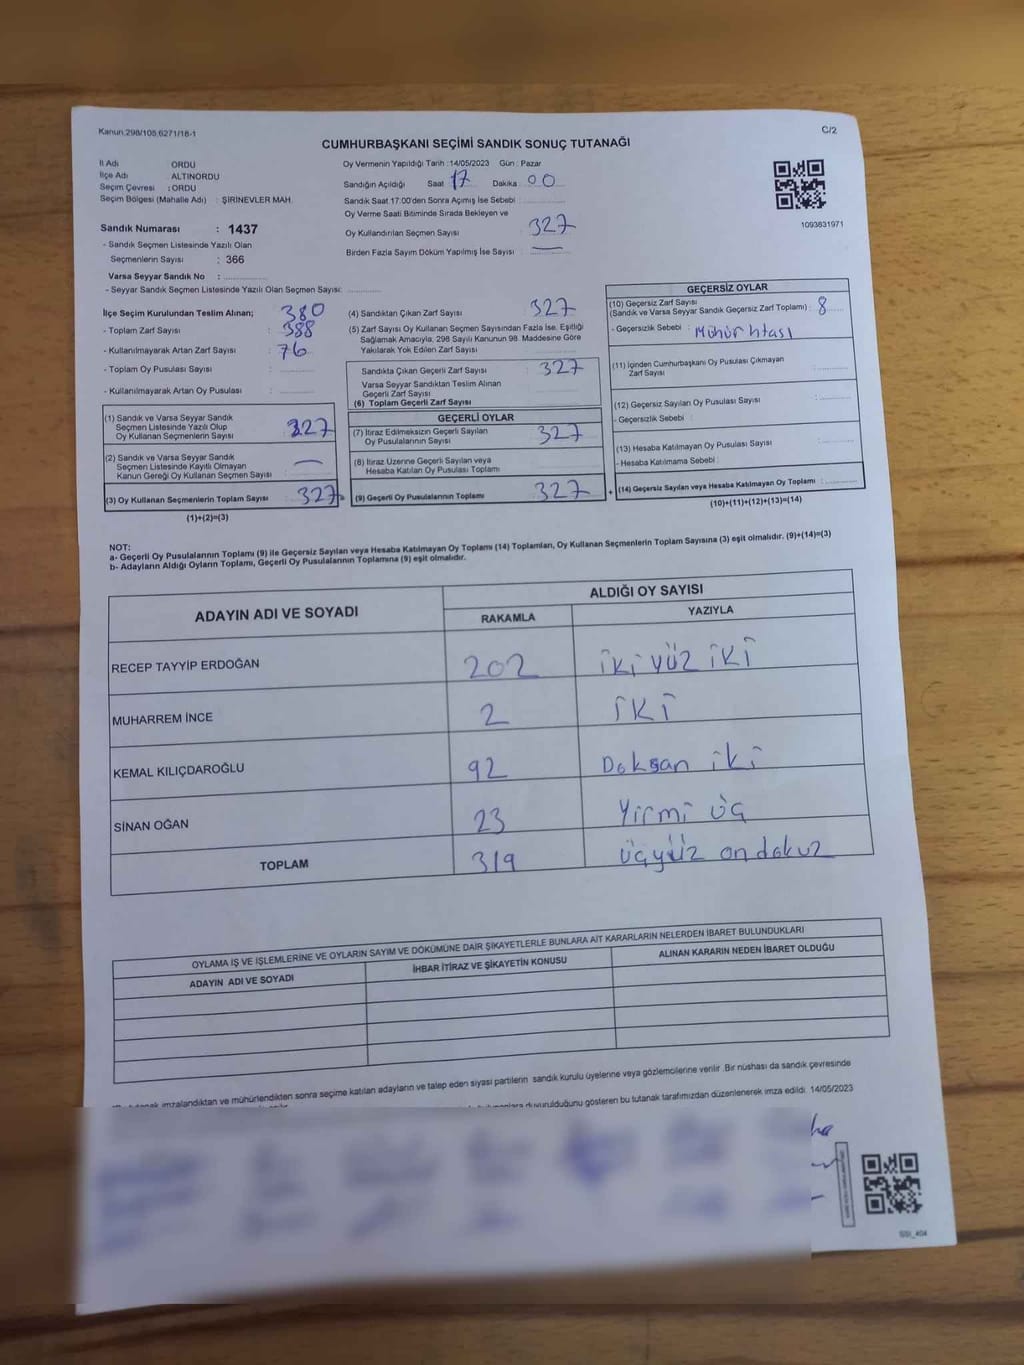 Kanun:298/105,6271/18-1
C/2
CUMHURBAŞKANI SEÇİMİ SANDIK SONUÇ TUTANAĞI
İl Adı ORDU
İlçe Adı ALTINORDU
Seçim Çevresi : ORDU
Seçim Bölgesi (Mahalle Adı) : ŞİRİNEVLER MAH.
Sandık Numarası : 1437
- Sandık Seçmen Listesinde Yazılı Olan
Seçmenlerin Sayısı : 366
Varsa Seyyar Sandık No :
- Seyyar Sandık Seçmen Listesinde Yazılı Olan Seçmen Sayısı:
Oy Vermenin Yapıldığı Tarih :14/05/2023 Gün : Pazar
Sandığın Açıldığı Saat 17 Dakika 00
Sandık Saat 17.00'den Sonra Açımış İse Sebebi :
Oy Verme Saati Bitiminde Sırada Bekleyen ve
Oy Kullandırılan Seçmen Sayısı : 327
Birden Fazla Sayım Döküm Yapılmış İse Sayısı : —
1093831971
İlçe Seçim Kurulundan Teslim Alınan; 380
- Toplam Zarf Sayısı : 388
- Kullanılmayarak Artan Zarf Sayısı : 76
- Toplam Oy Pusulası Sayısı :
- Kullanılmayarak Artan Oy Pusulası :
(1) Sandık ve Varsa Seyyar Sandık
Seçmen Listesinde Yazılı Olup
Oy Kullanan Seçmenlerin Sayısı : 327
(2) Sandık ve Varsa Seyyar Sandık
Seçmen Listesinde Kayıtlı Olmayan
Kanun Gereği Oy Kullanan Seçmen Sayısı —
(3) Oy Kullanan Seçmenlerin Toplam Sayısı : 327
(1)+(2)=(3)
(4) Sandıktan Çıkan Zarf Sayısı : 327
(5) Zarf Sayısı Oy Kullanan Seçmen Sayısından Fazla İse, Eşitliği
Sağlamak Amacıyla, 298 Sayılı Kanunun 98. Maddesine Göre
Yakılarak Yok Edilen Zarf Sayısı :
Sandıkta Çıkan Geçerli Zarf Sayısı : 327
Varsa Seyyar Sandıktan Teslim Alınan
Geçerli Zarf Sayısı
(6) Toplam Geçerli Zarf Sayısı :
GEÇERLİ OYLAR
(7) İtiraz Edilmeksizin Geçerli Sayılan
Oy Pusulalarının Sayısı : 327
(8) İtiraz Üzerine Geçerli Sayılan veya
Hesaba Katılan Oy Pusulası Toplamı :
(9) Geçerli Oy Pusulalarının Toplamı : 327
GEÇERSİZ OYLAR
(10) Geçersiz Zarf Sayısı
(Sandık ve Varsa Seyyar Sandık Geçersiz Zarf Toplamı) : 8
- Geçersizlik Sebebi : Mühür htası
(11) İçinden Cumhurbaşkanı Oy Pusulası Çıkmayan
Zarf Sayısı :
(12) Geçersiz Sayılan Oy Pusulası Sayısı :
- Geçersizlik Sebebi :
(13) Hesaba Katılmayan Oy Pusulası Sayısı :
- Hesaba Katılmama Sebebi :
+ (14) Geçersiz Sayılan veya Hesaba Katılmayan Oy Toplamı :
(10)+(11)+(12)+(13)=(14)
NOT:
a- Geçerli Oy Pusulalarının Toplamı (9) ile Geçersiz Sayılan veya Hesaba Katılmayan Oy Toplamı (14) Toplamları, Oy Kullanan Seçmenlerin Toplam Sayısına (3) eşit olmalıdır. (9)+(14)=(3)
b- Adayların Aldığı Oyların Toplamı, Geçerli Oy Pusulalarının Toplamına (9) eşit olmalıdır.
ADAYIN ADI VE SOYADI ALDIĞI OY SAYISI
RAKAMLA YAZIYLA
RECEP TAYYİP ERDOĞAN 202 iki yüz iki
MUHARREM İNCE 2 İKİ
KEMAL KILIÇDAROĞLU 92 Doksan iki
SİNAN OĞAN 23 Yirmi üç
TOPLAM 319 üçyüz on dokuz
OYLAMA İŞ VE İŞLEMLERİNE VE OYLARIN SAYIM VE DÖKÜMÜNE DAİR ŞİKAYETLERLE BUNLARA AİT KARARLARIN NELERDEN İBARET BULUNDUKLARI
ADAYIN ADI VE SOYADI İHBAR İTİRAZ VE ŞİKAYETİN KONUSU ALINAN KARARIN NEDEN İBARET OLDUĞU
tutanak imzalandıktan ve mühürlendikten sonra seçime katılan adayların ve talep eden siyasi partilerin sandık kurulu üyelerine veya gözlemcilerine verilir. Bir nüshası da sandık çevresinde
duyurulduğunu gösteren bu tutanak tarafımızdan düzenlenerek imza edildi. 14/05/2023
SSI_404